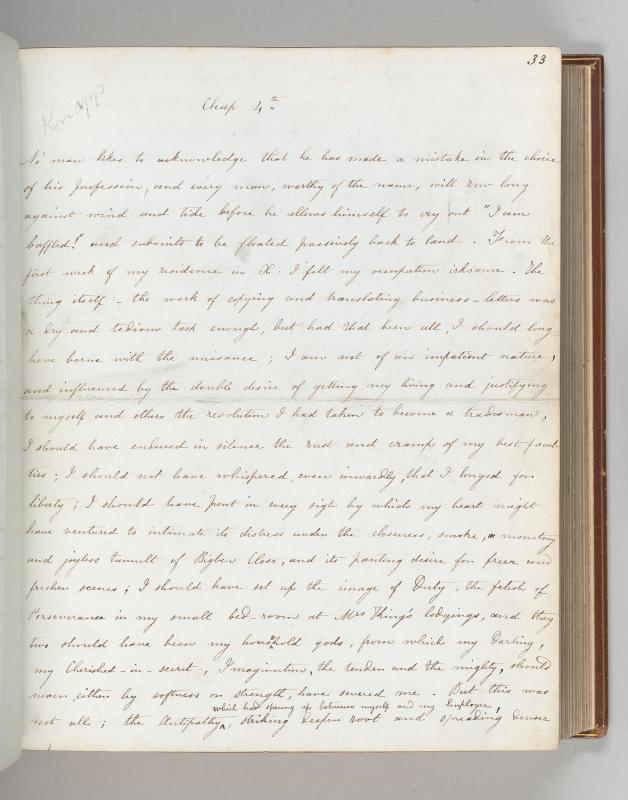 33
Knapp
Chap 4th
No man likes to acknowledge that he has made a mistake in the choice
of his profession, and every man, worthy of the name, will row long
against wind and tide before he allows himself to cry out "I am
baffled!" and submits to be floated passively back to land. From the
first week of my residence in X. I felt my occupation irksome. The
thing itself - the work of copying and translating business-letters was
a dry and tedious task enough, but had that been all, I should long
have borne with the nuisance; I am not of an impatient nature,
and influenced by the double desire of getting my living and justifying
to myself and others the resolution I had taken to become a tradesman,
I should have endured in silence the rust and cramp of my best facul
ties; I should not have whispered, even inwardly, that I longed for
liberty; I should have pent in every sigh by which my heart might
have ventured to intimate its distress under the closeness, smoke, monotony
and joyless tumult of Bigben Close, and its panting desire for freer and
fresher scenes; I should have set up the image of Duty, the fetish of
Perseverance in my small bed-room at Mrs King's lodgings, and they
two should have been my household gods, from which my Darling,
my Cherished-in-secret, Imagination, the tender and the mighty, should
never, either by softness or strength, have severed me. But this was
which had sprung up between myself and my Employer,
not all; the Antipathy, striking deeper root and spreading denser